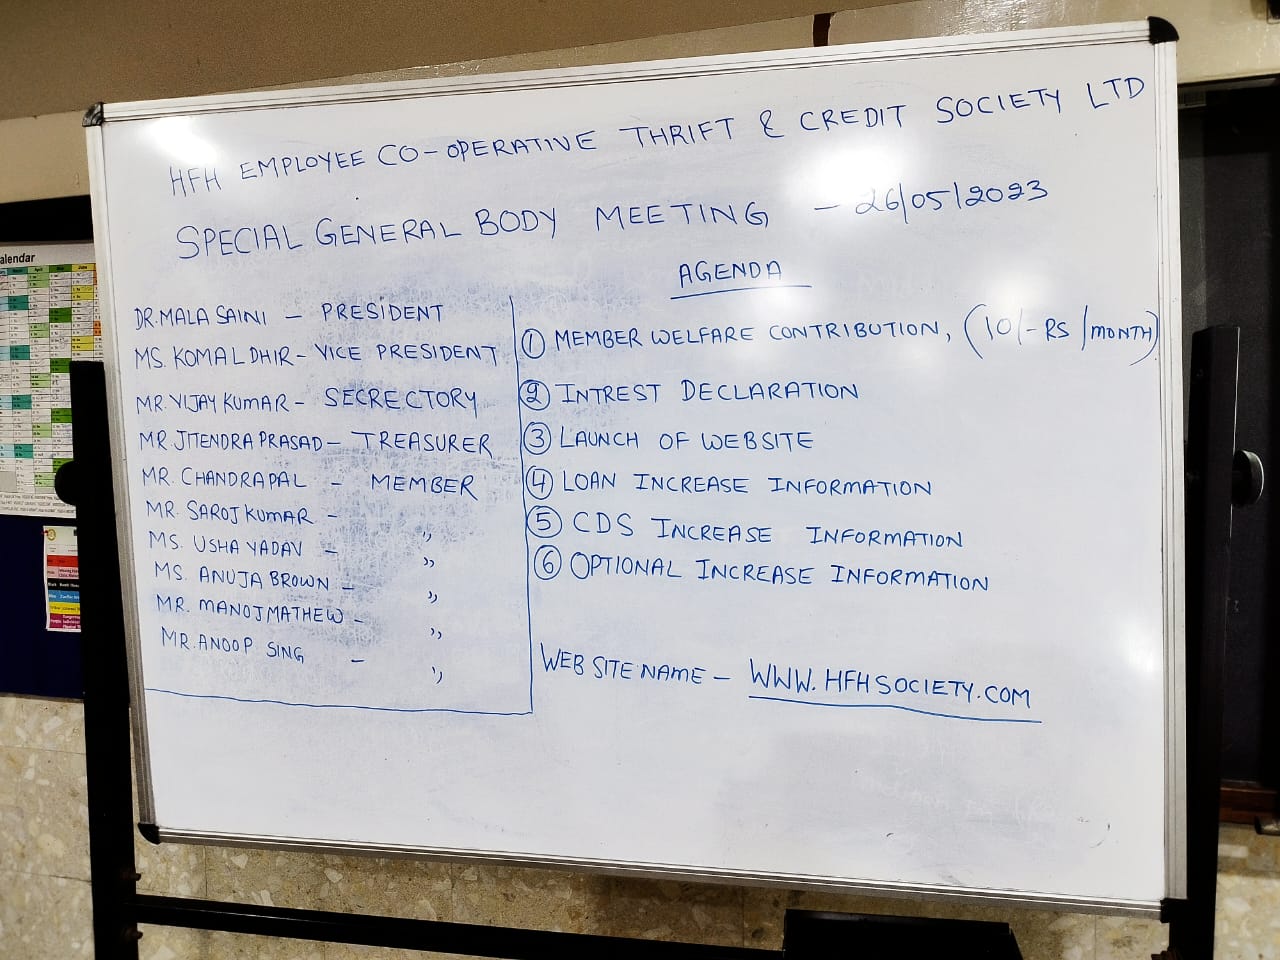 HFH EMPLOYEE CO-OPERATIVE THRIFT & CREDIT SOCIETY LTD
SPECIAL GENERAL BODY MEETING - 26/05/2023
DR. MALA SAINI - PRESIDENT
MS. KOMAL DHIR - VICE PRESIDENT
MR. VIJAY KUMAR - SECRECTORY
MR JITENDRA PRASAD - TREASURER
MR. CHANDRAPAL - MEMBER
MR. SAROJ KUMAR - ,,
MS. USHA YADAV - ,,
MS. ANUJA BROWN - ,,
MR. MANOJ MATHEW - ,,
MR. ANOOP SING - ,,
AGENDA
① MEMBER WELFARE CONTRIBUTION, (10/- RS /MONTH)
② INTREST DECLARATION
③ LAUNCH OF WEBSITE
④ LOAN INCREASE INFORMATION
⑤ CDS INCREASE INFORMATION
⑥ OPTIONAL INCREASE INFORMATION
WEB SITE NAME - WWW.HFHSOCIETY.COM
alendar
April
June